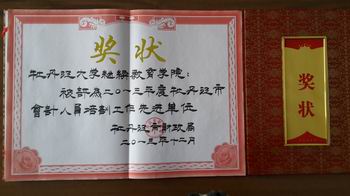 奖状
牡丹江大学继续教育学院：
被評為二〇一三年度牡丹江市
會計人員培訓工作先進单位
牡丹江市財政局
二〇一三年十二月
奖
状